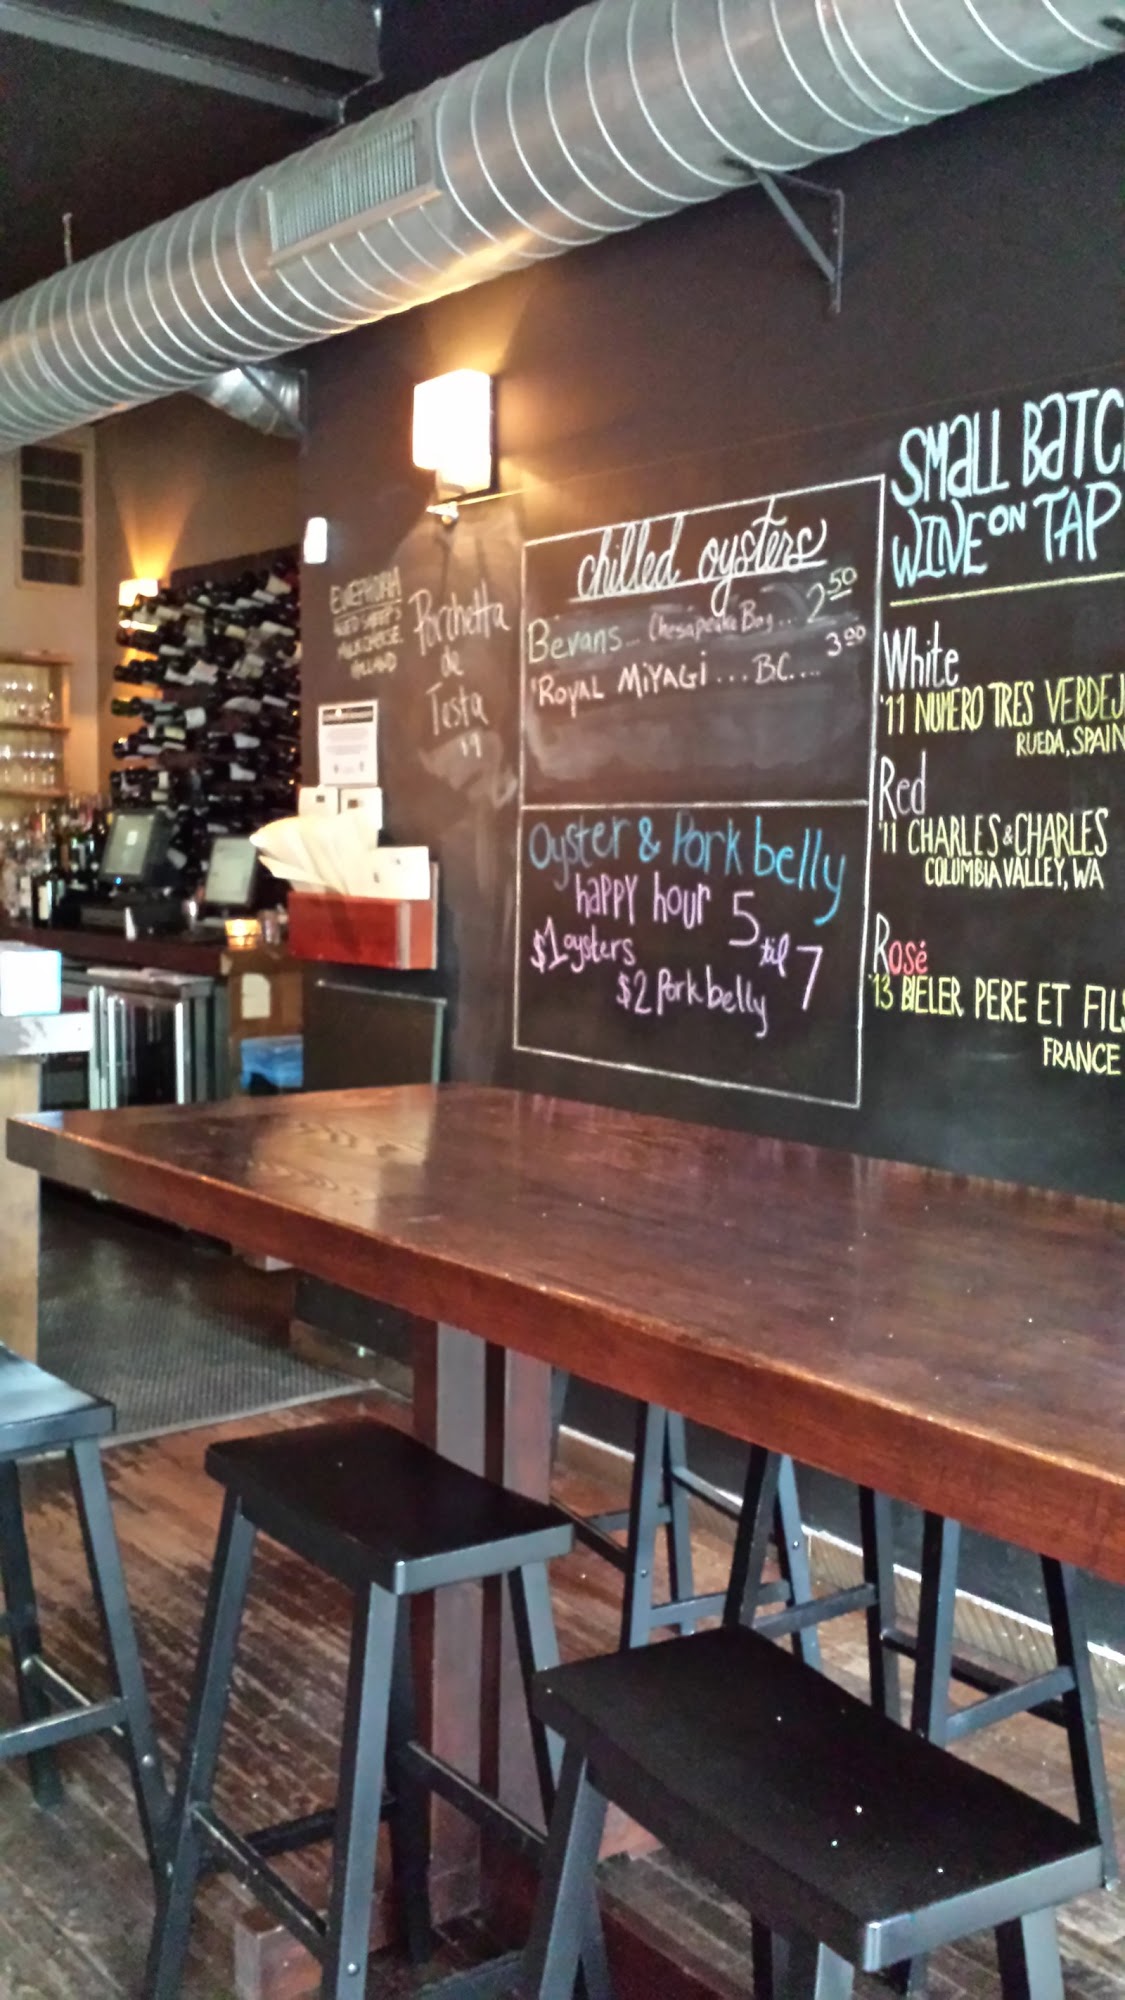 EWEPHORIA
AGED SHEEP'S
MILK CHEESE.
HOLLAND
Porchetta
de
Testa
chilled oysters
Bevans... Chesapeake Bay.. 2 50
Royal Miyagi ... B.C.... 3 00
Oyster & Pork belly
happy hour 5
$1 oysters til
$2 Pork belly 7
SMALL BATC
WINE ON TAP
White
'11 NUMERO TRES VERDEJ
RUEDA, SPAIN
Red
'11 CHARLES & CHARLES
COLUMBIA VALLEY, WA
Rosé
'13 BIELER PERE ET FILS
FRANCE